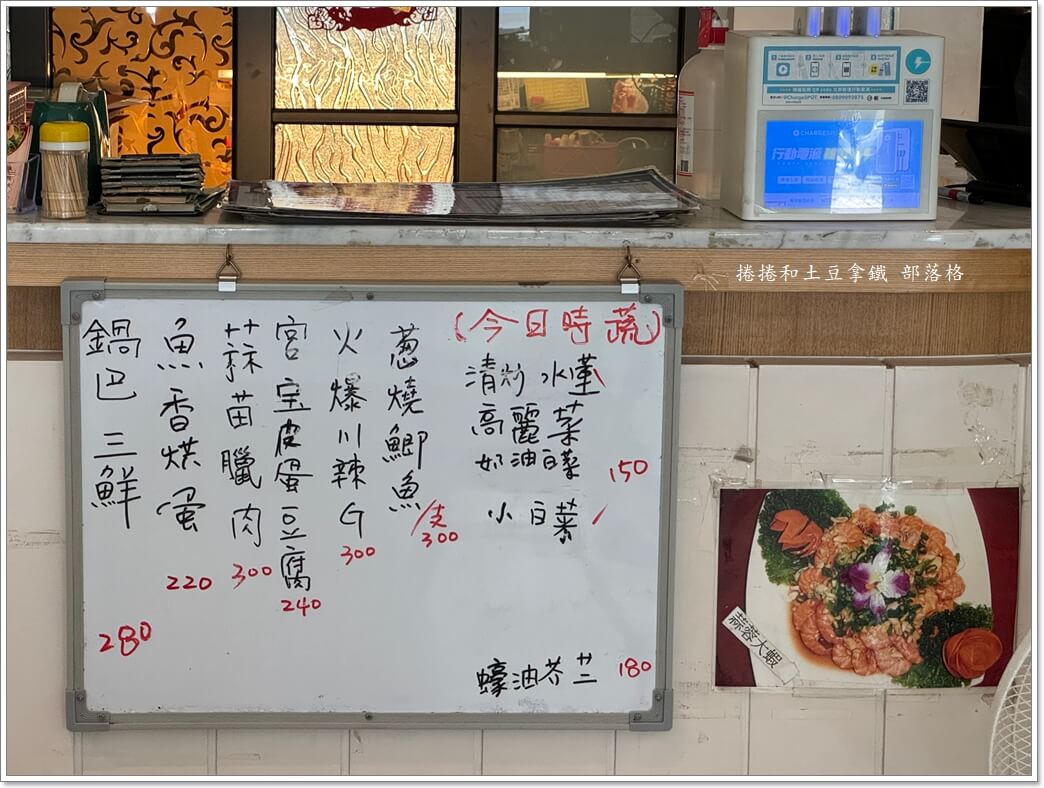 CHARGESPOT
行動電源
捲捲和土豆拿鐵 部落格
(今日時蔬)
清炒 水蓮
高麗菜
奶油白菜 150
小白菜
蠔油芥廿 180
蔥燒鯽魚 /支 300
火爆川辣G 300
宮宝皮蛋豆腐 240
蒜苗臘肉 300
魚香烘蛋 220
鍋巴三鮮 280
蒜蓉大蝦